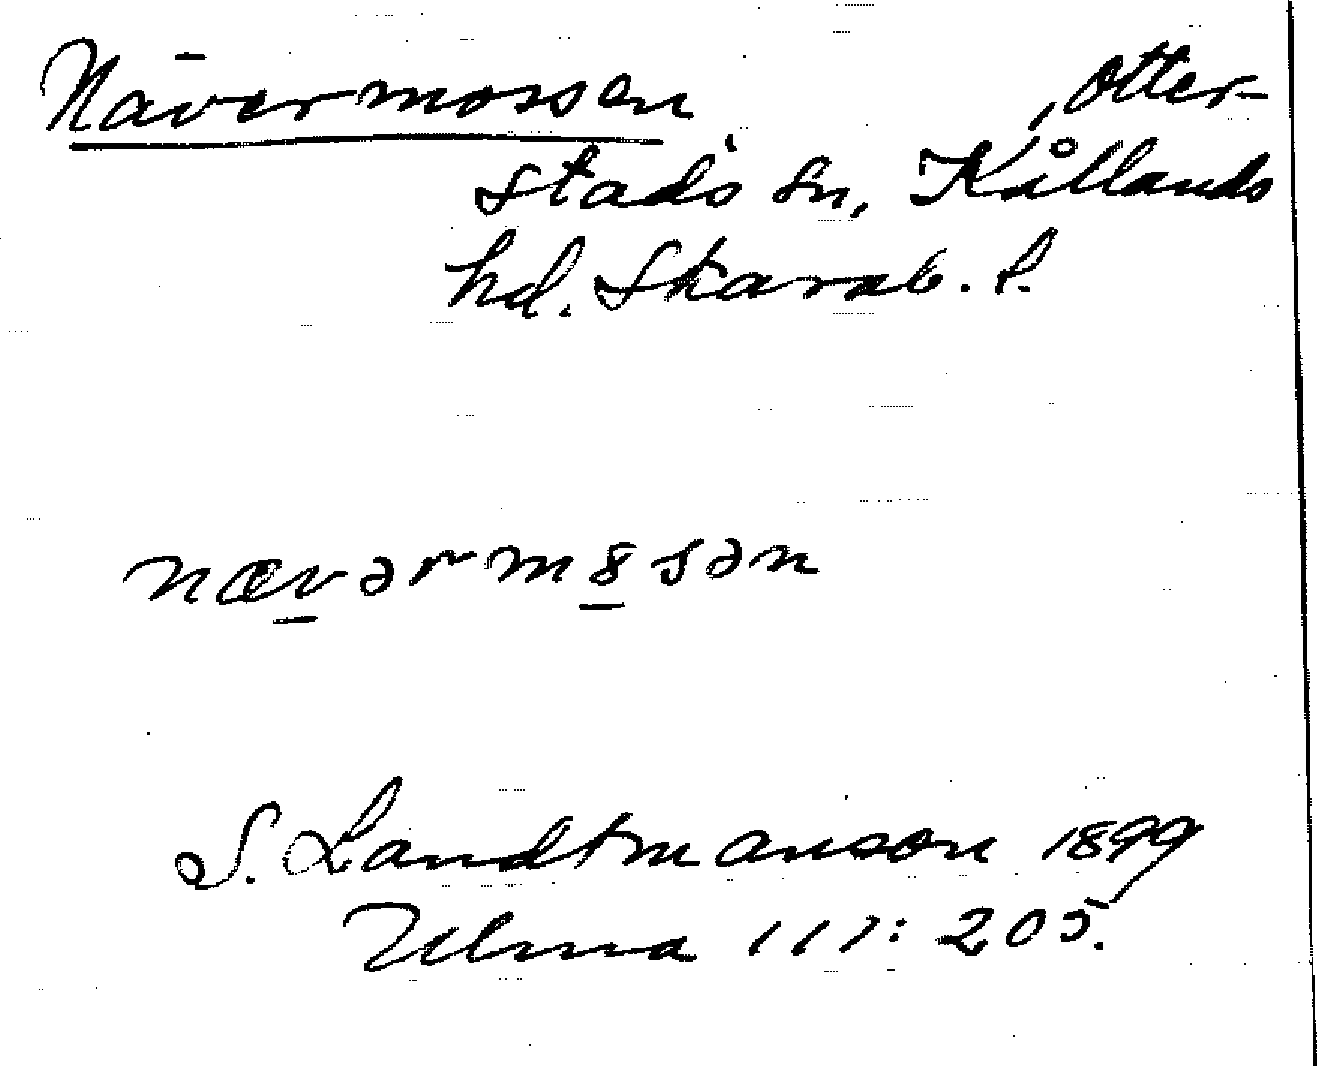 Nävermossen, Otter-
stads sn, Kållands
hd. Skarab. l.
nævərm8sən
S. Landtmanson 1899
Ulma 117: 205.